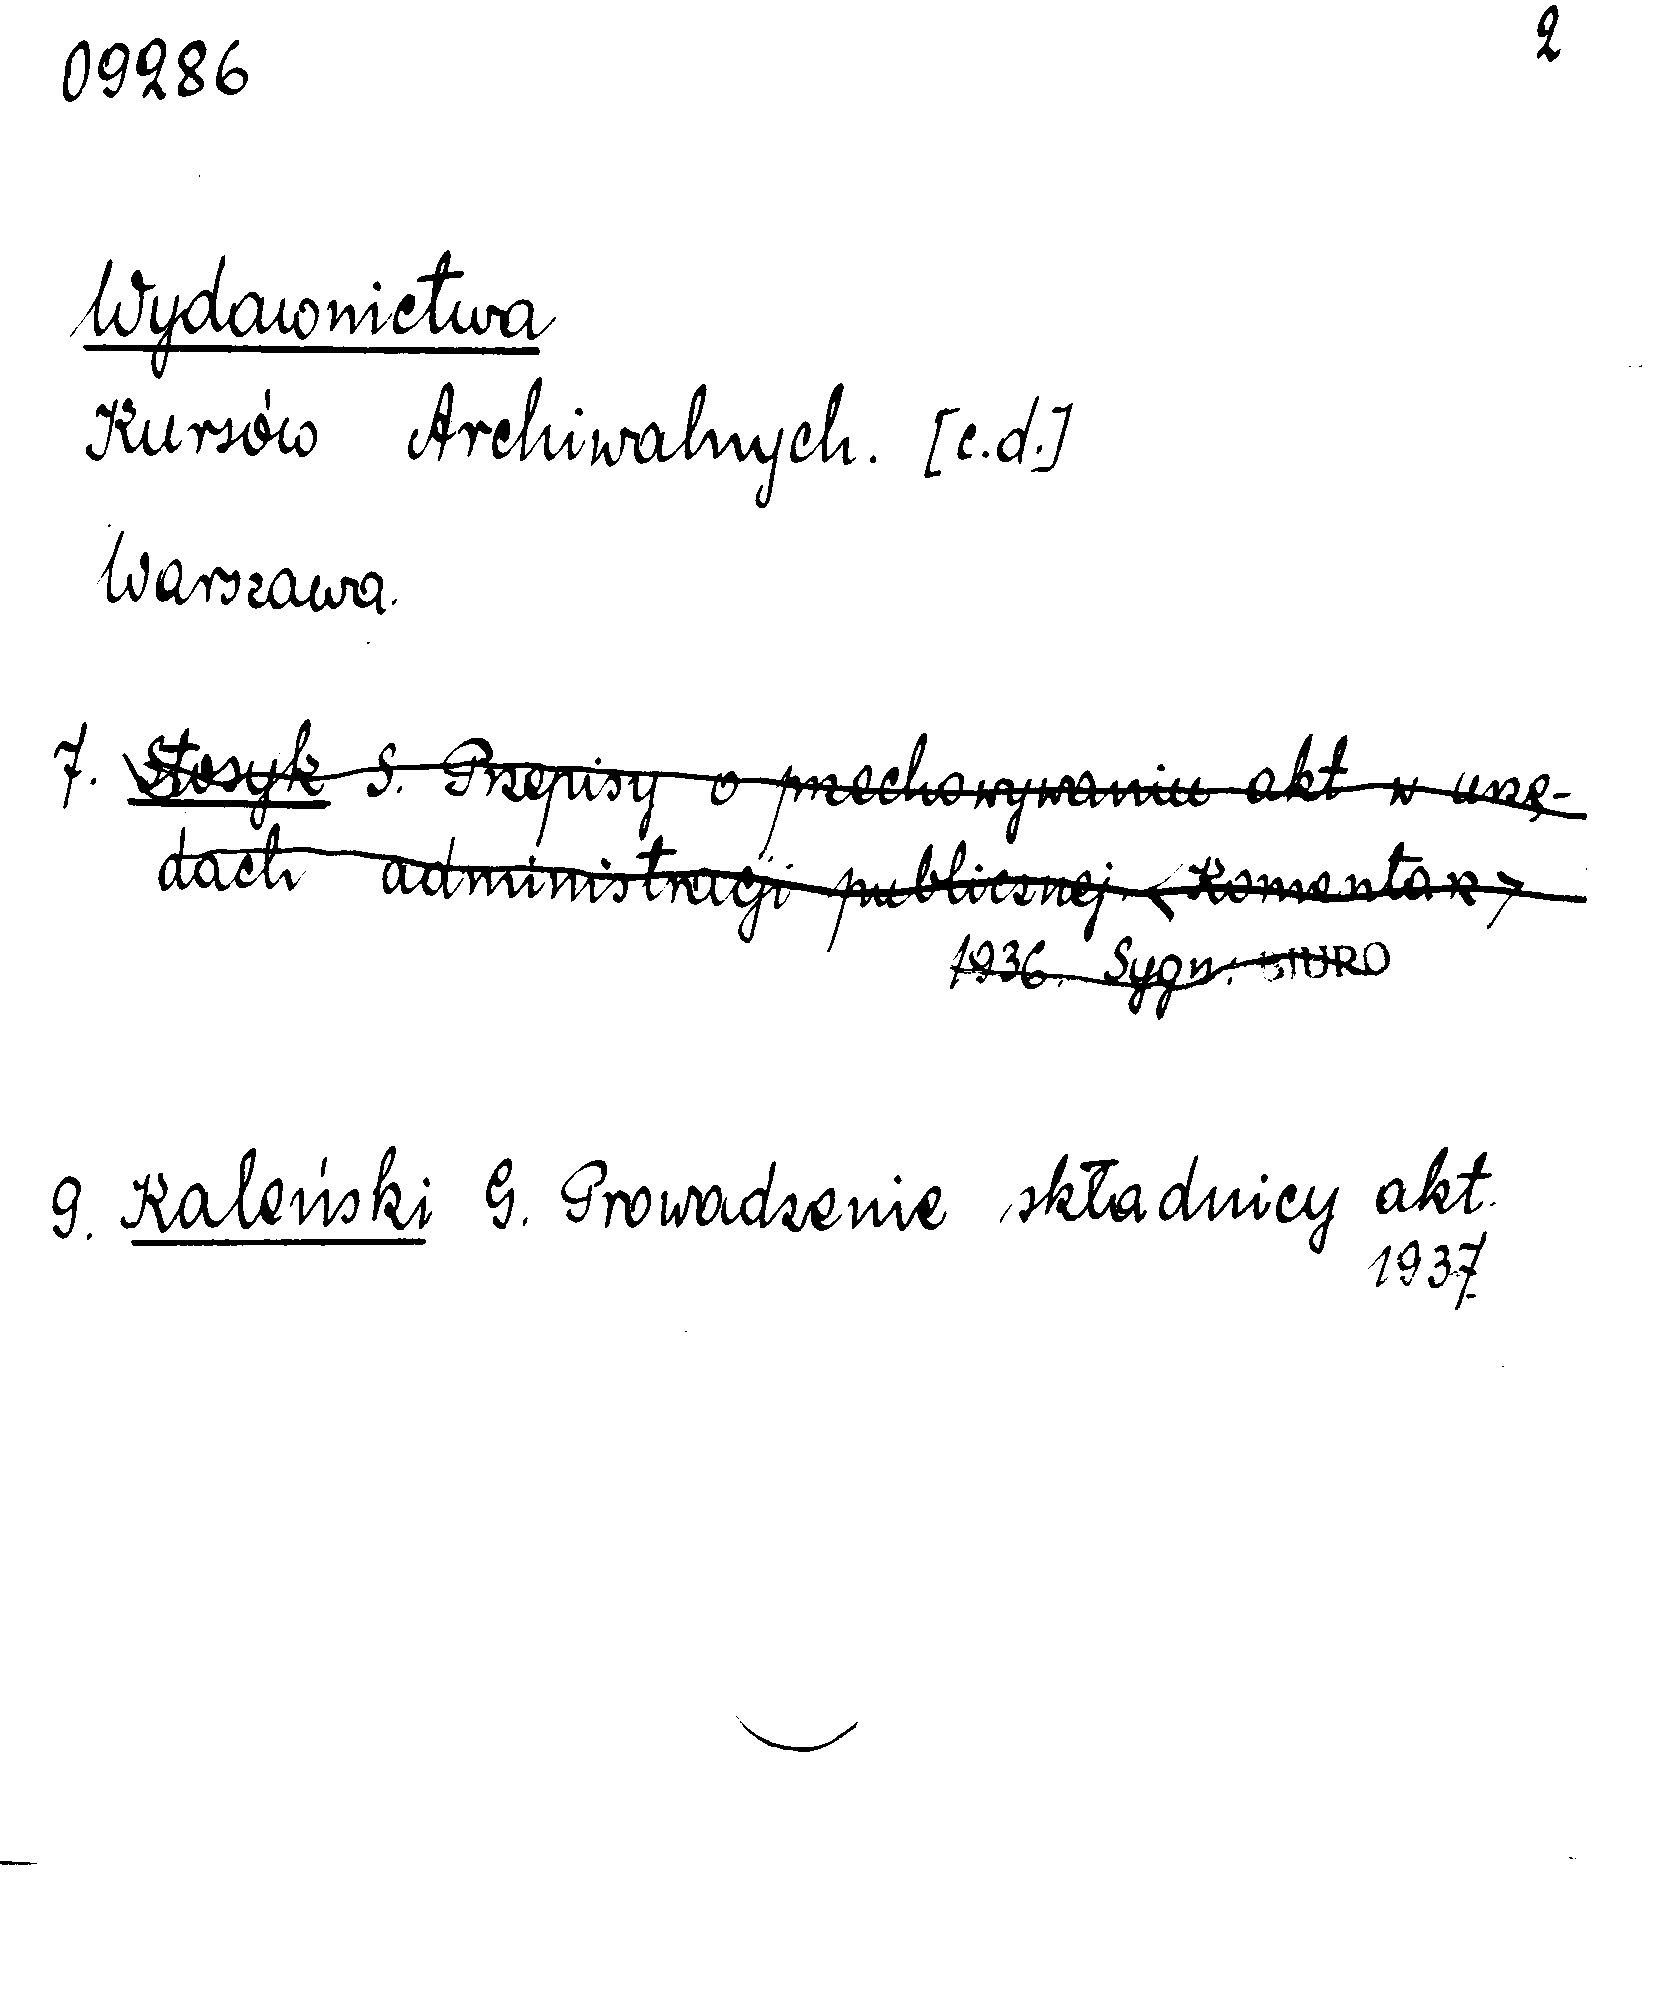 09286
2
Wydawnictwa
Kursów Archiwalnych. [c.d.]
Warszawa.
7. Stosyk S. Przepisy o przechowywaniu akt w urzę-
dach administracji publicznej. <Komentarz>
1936. Sygn.: BIURO
9. Kaleński G. Prowadzenie składnicy akt.
1937